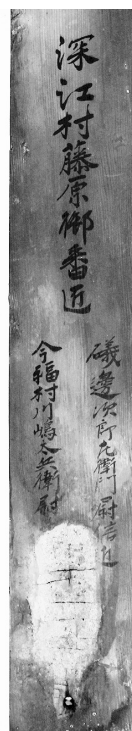 深江村藤原御番匠
礒邊次郎左衛門尉信近
今福村川嶋太兵衛尉